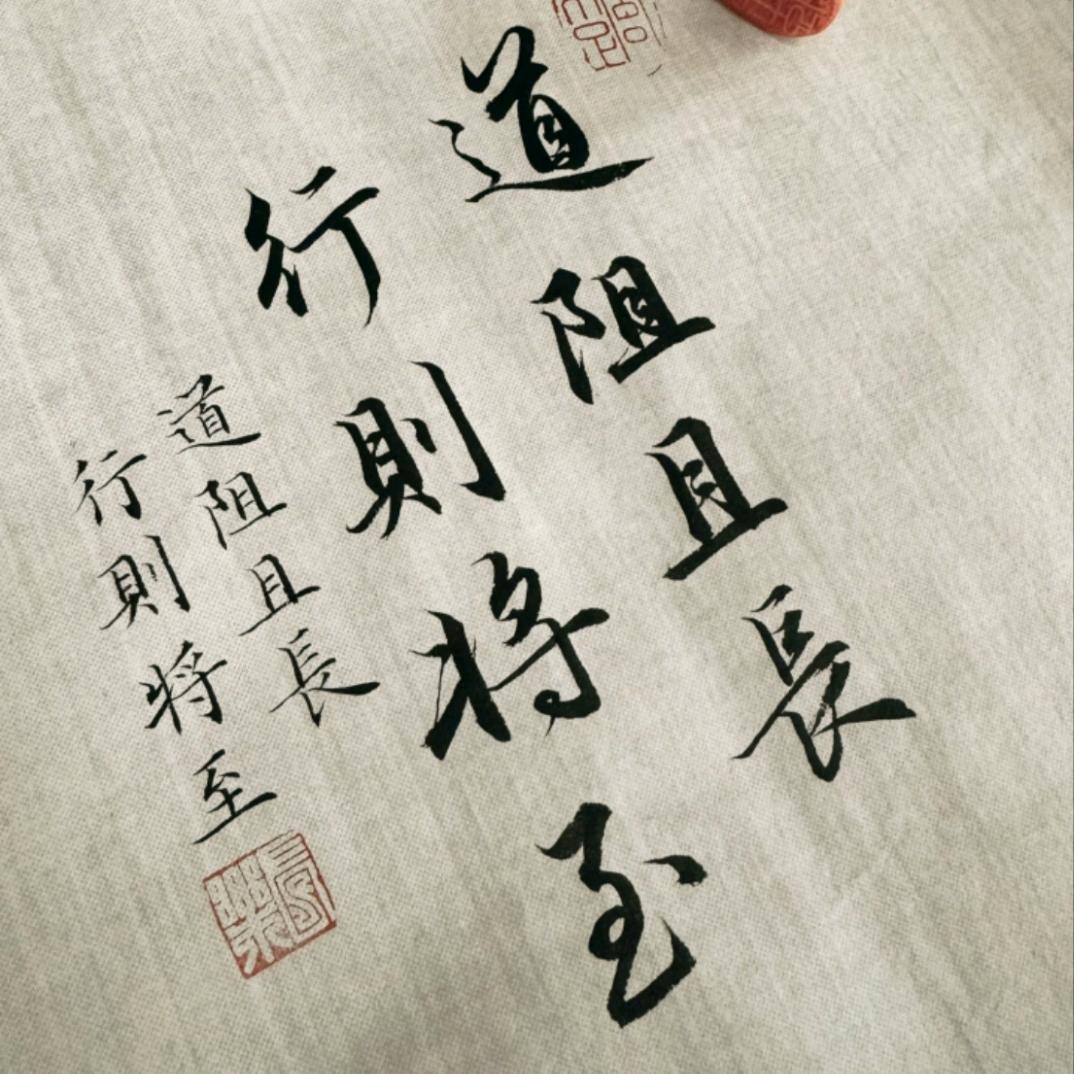 道阻且長
行則将至
道阻且長
行則将至